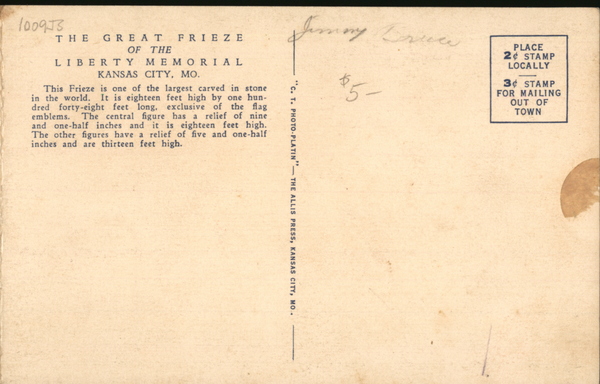 1009J3
THE GREAT FRIEZE
OF THE
LIBERTY MEMORIAL
KANSAS CITY, MO.
This Frieze is one of the largest carved in stone
in the world. It is eighteen feet high by one hun-
dred forty-eight feet long, exclusive of the flag
emblems. The central figure has a relief of nine
and one-half inches and it is eighteen feet high.
The other figures have a relief of five and one-half
inches and are thirteen feet high.
"C. T. PHOTO-PLATIN" — THE ALLIS PRESS, KANSAS CITY, MO.
Jimmy
$5-
PLACE
2¢ STAMP
LOCALLY
3¢ STAMP
FOR MAILING
OUT OF
TOWN